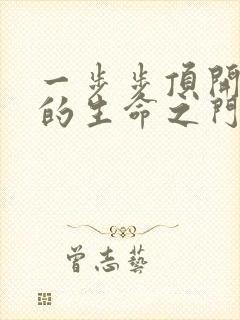 一步步頂開
的生命之門
曾志藝